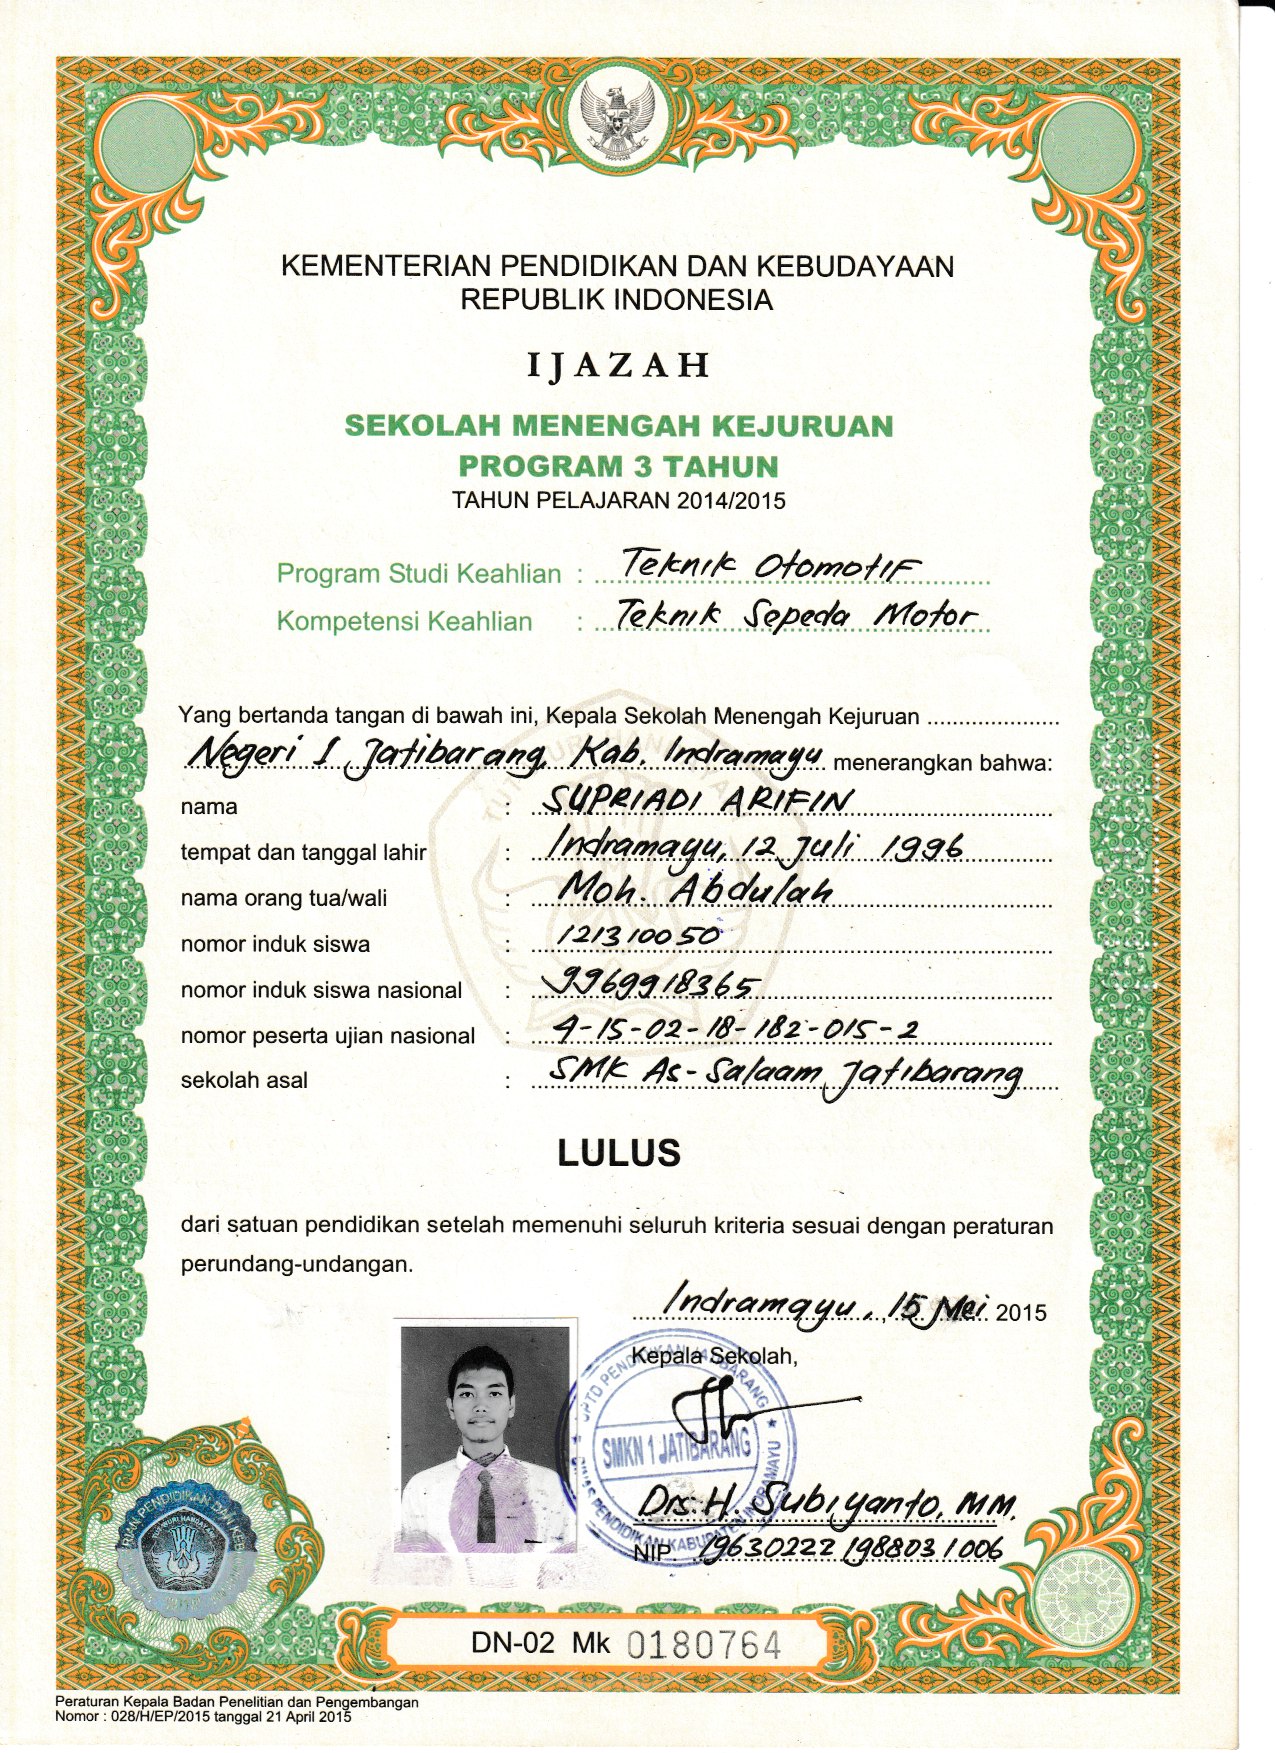 KEMENTERIAN PENDIDIKAN DAN KEBUDAYAAN
REPUBLIK INDONESIA
IJAZAH
SEKOLAH MENENGAH KEJURUAN
PROGRAM 3 TAHUN
TAHUN PELAJARAN 2014/2015
Program Studi Keahlian : Teknik Otomotif
Kompetensi Keahlian : Teknik Sepeda Motor
Yang bertanda tangan di bawah ini, Kepala Sekolah Menengah Kejuruan ....................
Negeri 1 Jatibarang, Kab. Indramayu menerangkan bahwa:
nama : SUPRIADI ARIFIN
tempat dan tanggal lahir : Indramayu, 12 Juli 1996
nama orang tua/wali : Moh. Abdulah
nomor induk siswa : 121310050
nomor induk siswa nasional : 9969918365
nomor peserta ujian nasional : 4-15-02-18-182-015-2
sekolah asal : SMK As-Salaam Jatibarang
LULUS
dari satuan pendidikan setelah memenuhi seluruh kriteria sesuai dengan peraturan
perundang-undangan.
Indramayu, 15 Mei 2015
Kepala Sekolah,
UPTD PENDIDIKAN JATIBARANG
SMKN 1 JATIBARANG
DINAS PENDIDIKAN KABUPATEN INDRAMAYU
Drs. H. Subiyanto, MM.
NIP. 19630222 198803 1006
DN-02 Mk 0180764
Peraturan Kepala Badan Penelitian dan Pengembangan
Nomor : 028/H/EP/2015 tanggal 21 April 2015